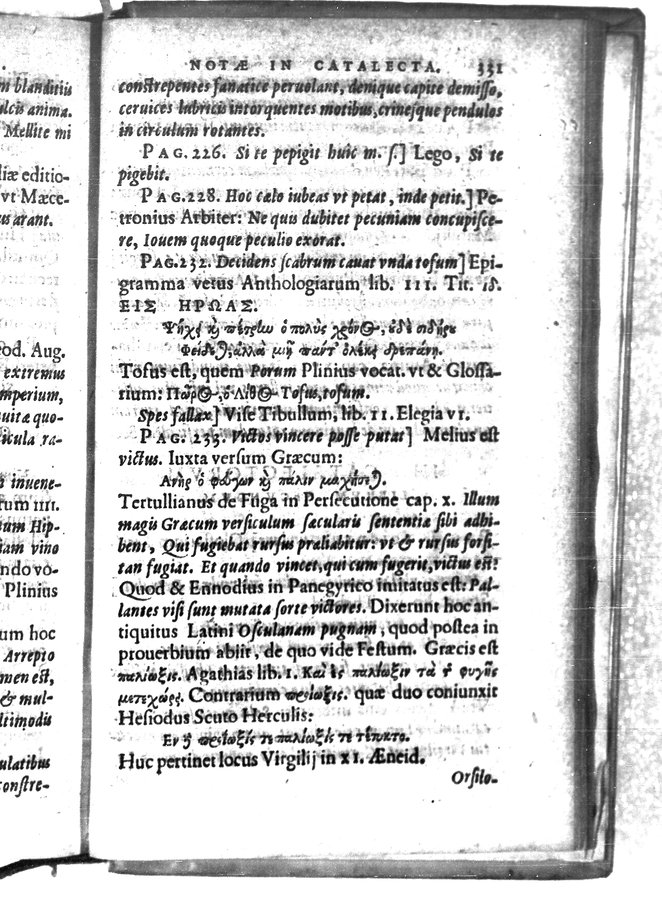 m blanditiis
ulcis anima.
Mellite mi
liæ editio-
vt Mæce-
us arant.
eod. Aug.
extremus
mperium,
uitæ quo-
licula ra-
i inuene-
rum IIII.
ium Hip-
iam vino
ndo vo-
Plinius
um hoc
Arrepto
men est,
& mul-
ltimodis
ulatibus
constre-
NOTÆ IN CATALECTA. 331
constrepentes fanatice peruolant, denique capite demisso,
ceruices lubricis intorquentes motibus, crinesque pendulos
in circulum rotantes.
PAG. 226. Si te pepigit huic m. s.] Lego, Si te
pigebit.
PAG. 228. Hoc cælo iubeas vt petat, inde petit.] Pe-
tronius Arbiter: Ne quis dubitet pecuniam concupisce-
re, Iouem quoque peculio exorat.
PAG. 232. Decidens scabrum cauat vnda tofum] Epi-
gramma vetus Anthologiarum lib. III. Tit. ιδ.
ΕΙΣ ΗΡΩΑΣ.
Ψήχει καὶ πέτρην ὁ πολὺς χρόνος, ἐδὲ σιδήρε
Φείδεται, ἀλλὰ μιῇ πάντ' ὀλέκει δρεπάνῃ.
Tofus est, quem Porum Plinius vocat. vt & Glossa-
rium: Πῶρος, ὁ λίθος Tofus, tofum.
Spes fallax] Vise Tibullum, lib. II. Elegia VI.
PAG. 233. Victos vincere posse putat] Melius est
victus. Iuxta versum Græcum:
Ανὴρ ὁ φεύγων καὶ πάλιν μαχήσεται.
Tertullianus de Fuga in Persecutione cap. X. Illum
magis Græcum versiculum sæcularis sententiæ sibi adhi-
bent, Qui fugiebat rursus præliabitur: vt & rursus forsi-
tan fugiat. Et quando vincet, qui cum fugerit, victus est?
Quod & Ennodius in Panegyrico imitatus est: Pal-
lantes visi sunt mutata sorte victores. Dixerunt hoc an-
tiquitus Latini Osculanam pugnam, quod postea in
prouerbium abiit, de quo vide Festum. Græcis est
παλίωξις. Agathias lib. I. Καὶ ἐς παλίωξιν τὰ τ φυγῆς
μετεχώρει. Contrarium προίωξις. quæ duo coniunxit
Hesiodus Scuto Herculis:
Εν δ προίωξίς τε παλίωξίς τε τέτυκτο.
Huc pertinet locus Virgilij in XI. Æneid.
Orsilo-